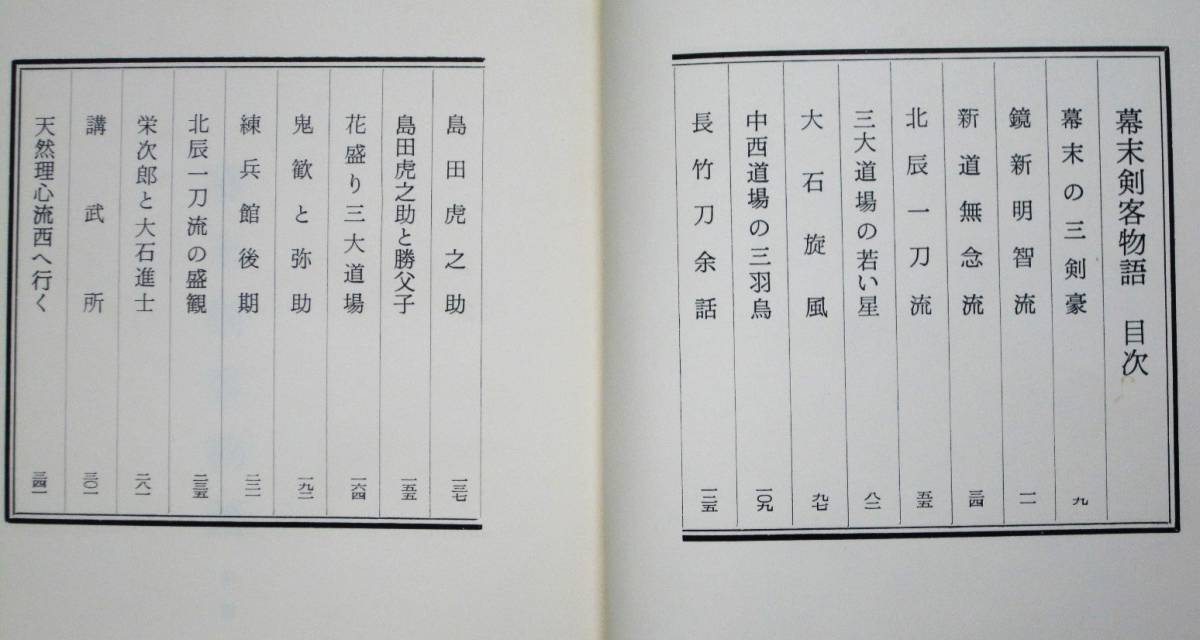 幕末剣客物語 目次
幕末の三剣豪 九
鏡新明智流 一一
新道無念流 三四
北辰一刀流 五五
三大道場の若い星 八二
大石旋風 九七
中西道場の三羽烏 一〇九
長竹刀余話 一二五
島田虎之助 一三七
島田虎之助と勝父子 一五五
花盛り三大道場 一六四
鬼歓と弥助 一九二
練兵館後期 二二一
北辰一刀流の盛観 二三五
栄次郎と大石進士 二八一
講武所 三〇一
天然理心流西へ行く 三四一